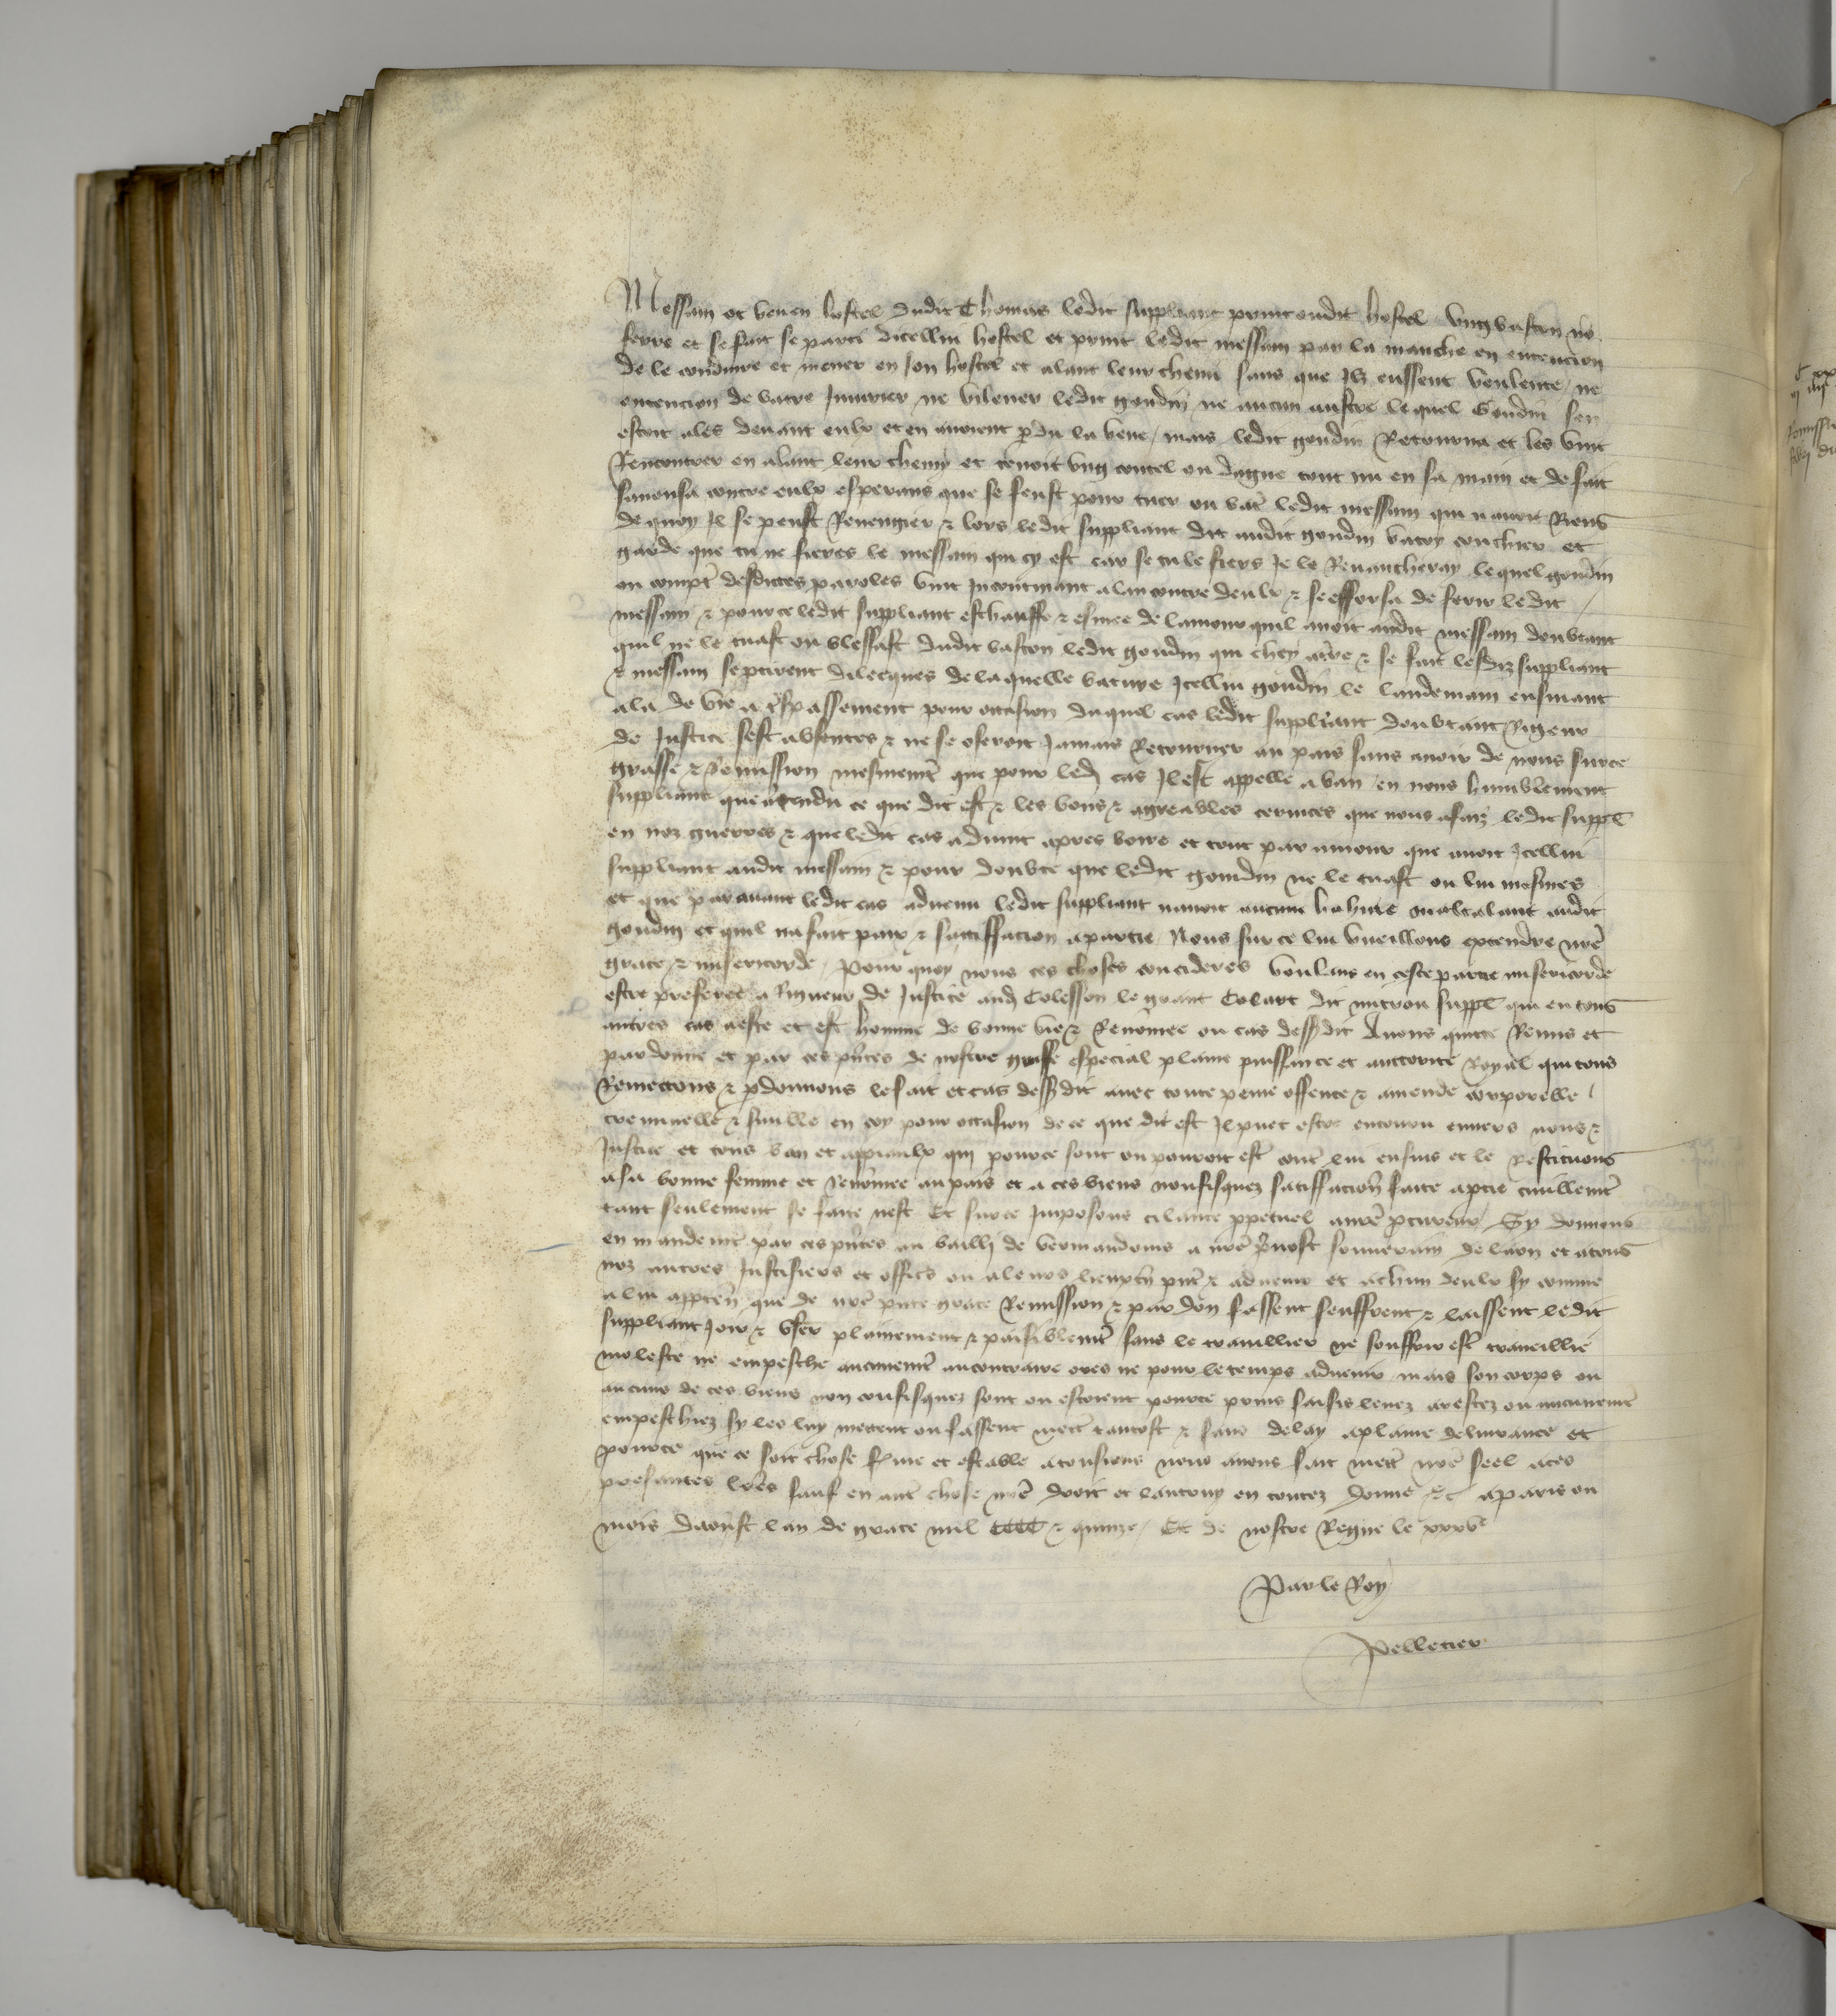 Messam et beu en lostel dudit Thomas ledit suppliant print oudit hostel ung baston no
ferre et se fait se parti dicellui hostel et print ledit messam par la manche en entencion
de le conduire et mener en son hostel et alant leur chemi sans que Ilz eussent voulente ne
entencion de batre Iniurier ne vilener ledit goudin ne aucun austre lequel Goudin sen
estoit ales deuant eulx et en auoient pdu la veue / mais ledit goudin Retourna et les vint
Rencontrer en alant leur chemy et tenoit ung coutel ou dague tout nu en sa main et de fait
sauansa contre eulx esperans que se feust pour tuer ou bat ledit messam qui nauoit Riens
de quoy Il se peust Reuengier & lors ledit suppliant dit audit goudin va toy couchier et
garde que tu ne fieres le messam qui cy est car se tu le fiers Je le Reuancheray lequel goudin
ou compt desdittes paroles vint Incontinant alencontre deulx & se esforsa de ferir ledit
messam & pource ledit suppliant eschauffe & esmee de lamour quil auoit audit messam doubtant
quil ne le tuast ou blessast dudit baston ledit goudin qui chey a tre & se fait lesdiz suppliant
& messam septirent dilecques de laquelle bature Icellui goudin le landemain ensuiuant
ala de vie a tspassement pour occasion duquel cas ledit suppliant doubtant Rigeur
de Justice sest absentes & ne se oseroit Jamais Retourner au pais sans auoir de nous surce
grasse & Remission mesmemt que pour led cas Il est appelle a ban / en nous humblement
suppliant que atendu ce que dit est & les bons & agreables ceruices que nous a faiz ledit suppl
en noz guerres & que ledit cas aduint apres boire et tout par amour que auoit Icellui
suppliant audit messam & pour doubte que ledit goudin ne le tuast ou lui mesmes
et que parauant ledit cas aduenu ledit suppliant nauoit aucune hahine maltalant audit
goudin et quil na fait paix & sattiffacion a partie / Nous sur ce lui vueillons extendre nre
grace & misericorde / Pour quoy nous ces choses concideres voulans en ceste partie misericorde
estre preferee a Rigueur de Justice aud Colesson le grant Colart dit mitron suppl qui en tous
autres cas a este et est homme de bonne vie & Renomee ou cas dessdit Auons quitte Remis et
pardonne et par ces pntes de nostre grasse especial plaine puissance et auctorite Royal quitons
Remettons & pdonnons le fait et cas dessdit auec toute peine offence & amende corporelle
creminelle & siuille en coy pour occasion de ce que dit est Il puet estre encouru enuers nous &
Justice et tous ban et apiaulx qui pource sont ou pouroit est cont lui ensuis et le Restituons
a sa bonne femme et Renomee au pais et a ces biens nonfisquez satiffacion faite aptie ciuillemt
tant seulement se faite nest Et surce Imposons cilance ppetuel a nre pcureur / Sy donnons
en mandemt par ces pntes au bailli de vermandois a nre preuost souuerain de laon et a tous
noz autres Justisiers et offics ou a leurs lieuxten pnt & aduenir et a chun deulx sy comme
a lui apptein que de nre pnte grace Remission & pardon fassent seuffrent & laissent ledit
suppliant Joir & vser plainement & paisiblemt sans le trauillier ne souffrir est traueillie
moleste ne empesche aucunemt au contraire ores ne pour le temps aduenir mais son corps ou
aucuns de ces biens non confisquez sont ou estoient pource prins saisis leuez arestez ou aucunemt
empeschiez sy les luy mettent ou fassent mett tantost & sans delay a plaine deliurance et
pource que ce soit chose fme et estable a tousiours nous auons fait mett nre seel a ces
presantes lres sauf en aut chose nre droit et lautruy en toutez donne &c a paris ou
mois daoust lan de grace mil CCCC & quinze / Et de nostre Regne le xxxve
Par le Roy
Pelletier